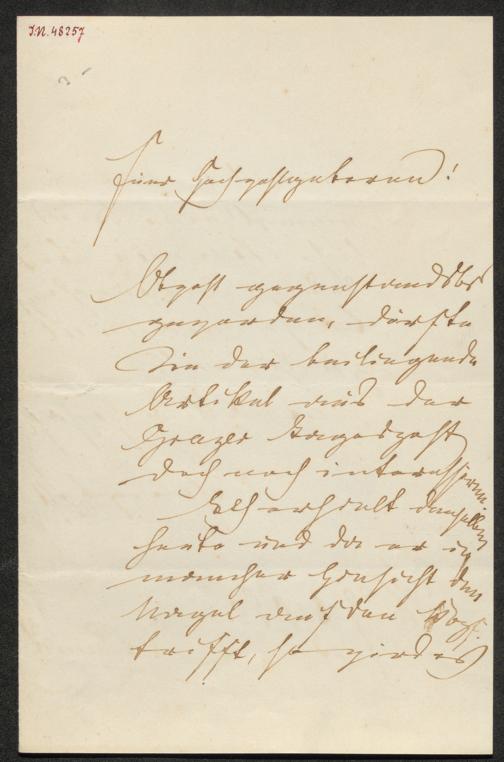 I.N. 48257
Euer Hochwohlgeboren!
Obwohl gegenstandslos
geworden, dürfte
Sie der beiliegende
Artikel aus der
Grazer Tagespost
doch noch interessieren.
Ich erhielt denselben
heute und da er in
mancher Hinsicht den
Nagel auf den Kopf
trifft, so wird es